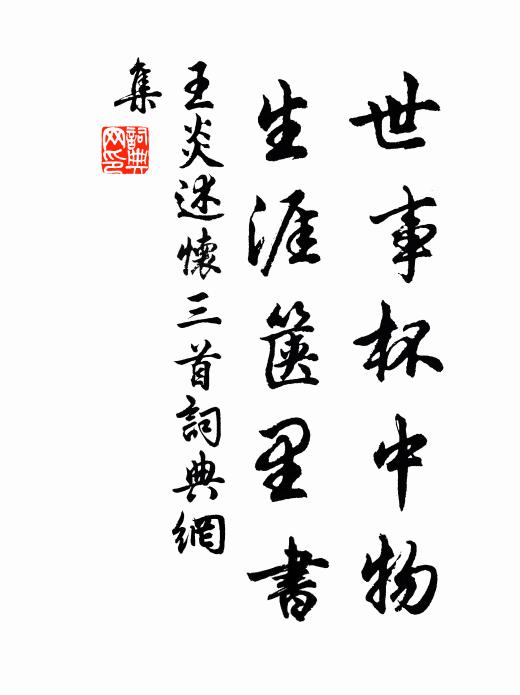 世事杯中物
生涯篋里書
王炎述懷三首詞典網
集
詞典網印